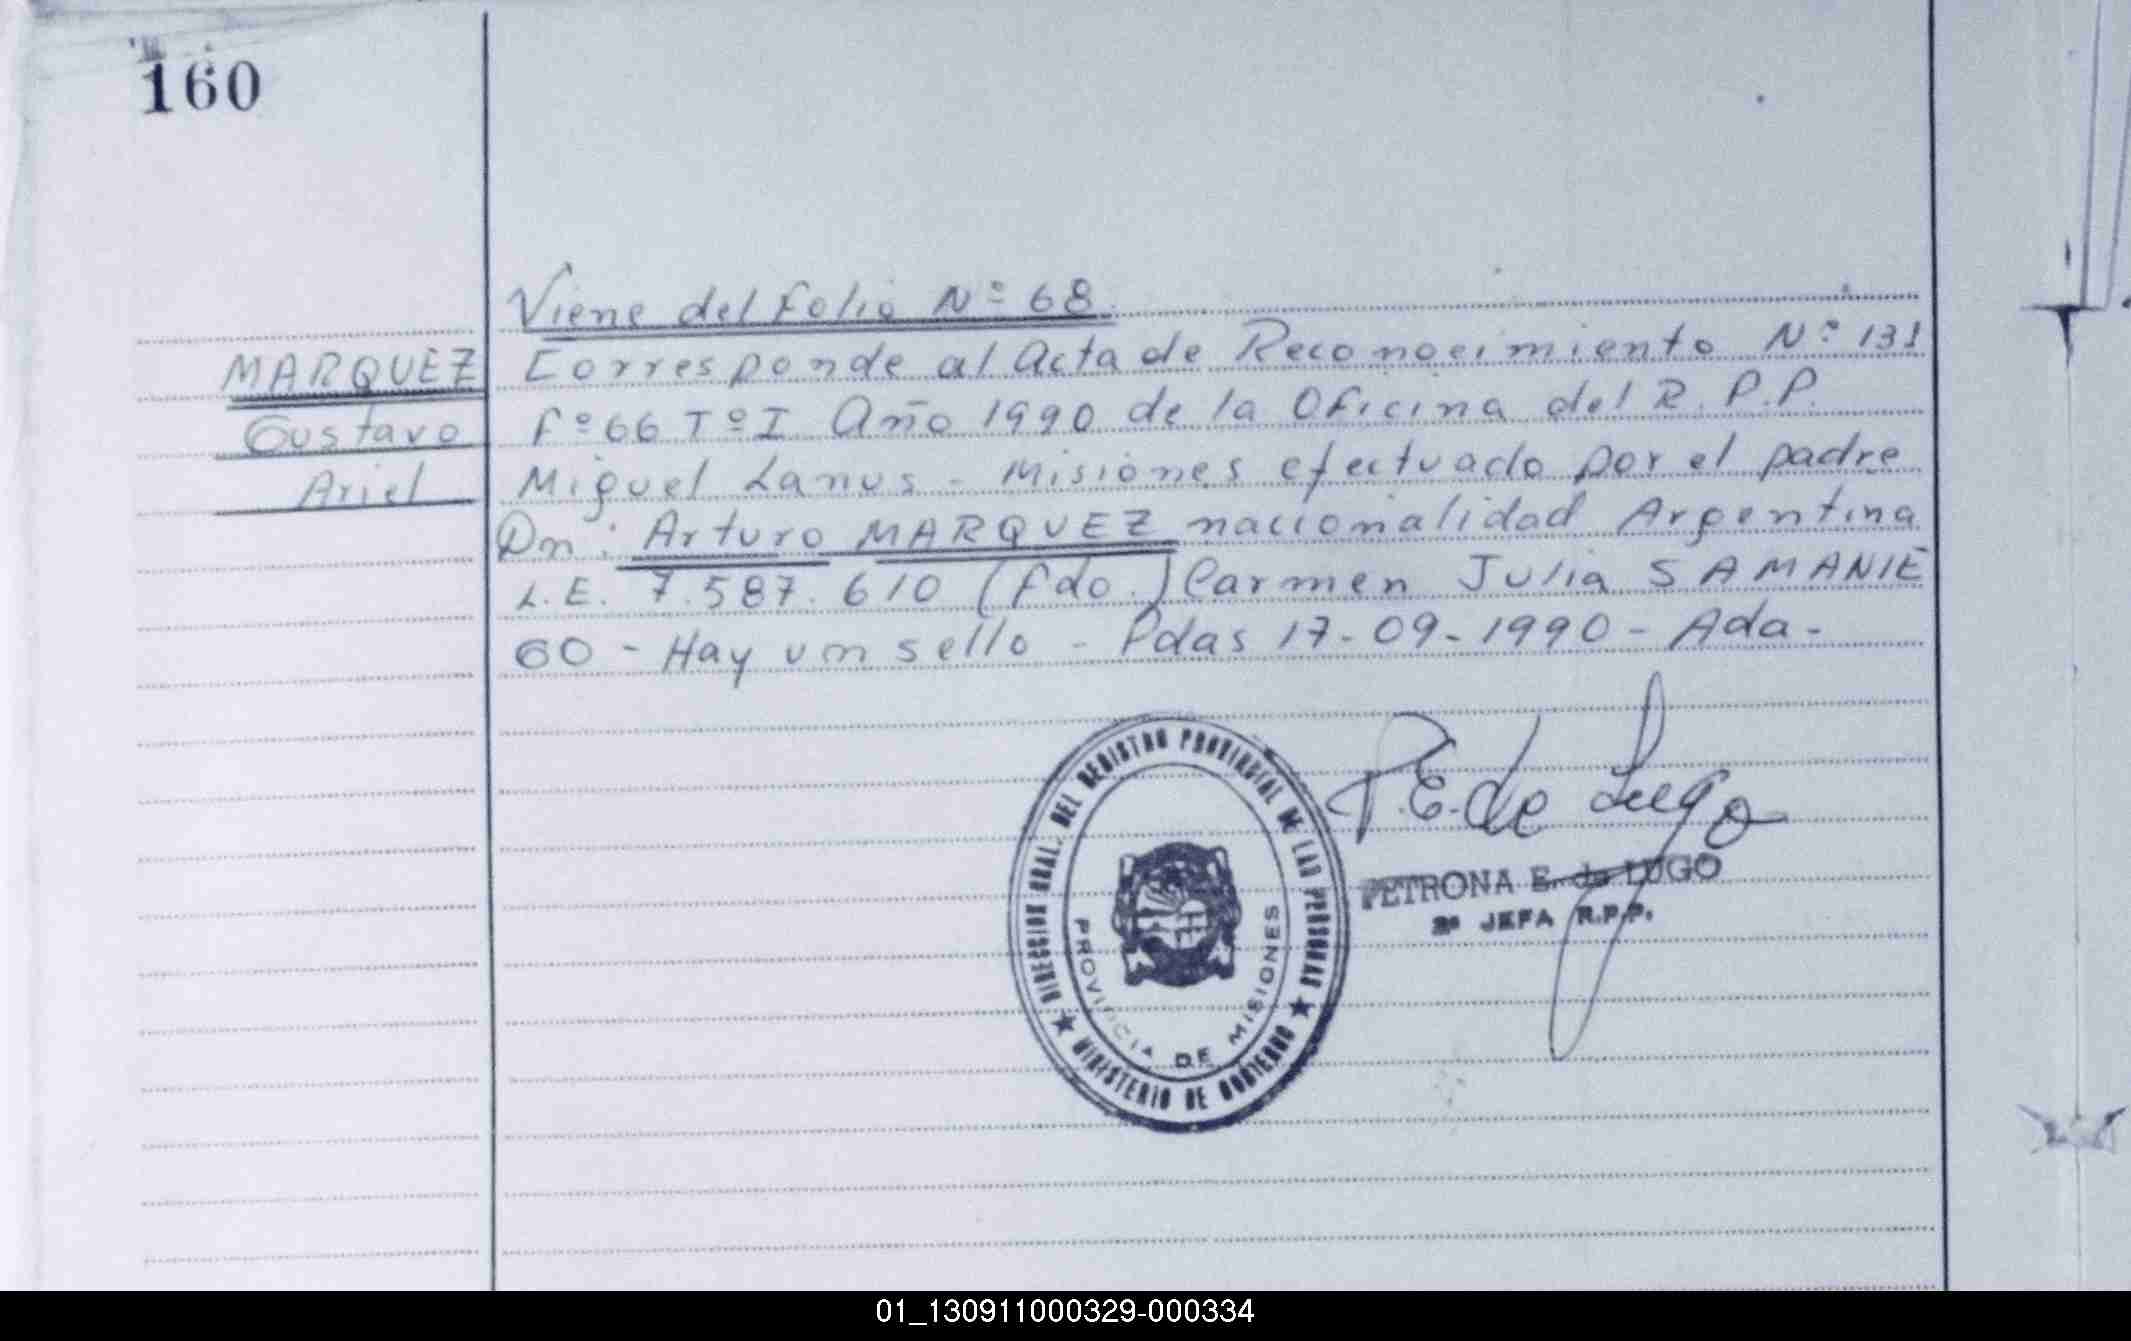 160
Viene del Folio Nº 68
MARQUEZ
Gustavo
Ariel
Corresponde al Acta de Reconocimiento Nº 131
Fº 66 Tº I Año 1990 de la Oficina del R.P.P.
Miguel Lanus - Misiones efectuado por el padre
Dn: Arturo MARQUEZ nacionalidad Argentina
L.E. 7.587.610 (Fdo.) Carmen Julia SAMANIE
GO - Hay un sello - Pdas 17-09-1990 - Ada -
P.E. de Lugo
PETRONA E. de LUGO
2ª JEFA R.P.P.
DIRECCION GRAL. DEL REGISTRO PROVINCIAL DE LAS PERSONAS
★ MINISTERIO DE GOBIERNO ★
PROVINCIA DE MISIONES
01_130911000329-000334